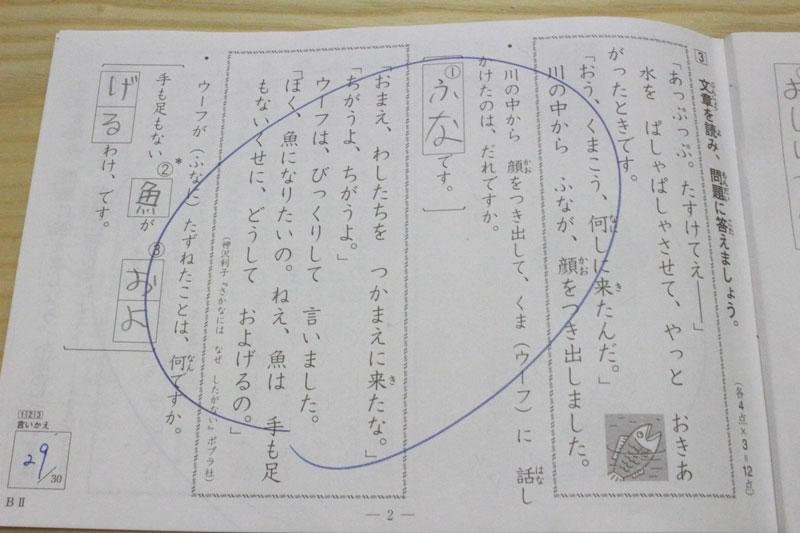 ③ 文章を読み、問題に答えましょう。
(各4点×3=12点)
「あっぷっぷ。たすけてえ——」
水を ぱしゃぱしゃさせて、やっと おきあ
がったときです。
「おう、くまこう、何しに来たんだ。」
川の中から ふなが、顔をつき出しました。
・川の中から 顔をつき出して、くま(ウーフ)に 話し
かけたのは、だれですか。
①ふな です。
「おまえ、わしたちを つかまえに来たな。」
「ちがうよ、ちがうよ。」
ウーフは、びっくりして 言いました。
「ぼく、魚になりたいの。ねえ、魚は 手も足
もないくせに、どうして およげるの。」
(神沢利子『さかなには なぜ したがない』ポプラ社)
・ウーフが(ふなに)たずねたことは、何ですか。
手も足もない ②*魚 が ③およ
げる わけ、です。
①②③
言いかえ
29/30
BⅡ
— 2 —